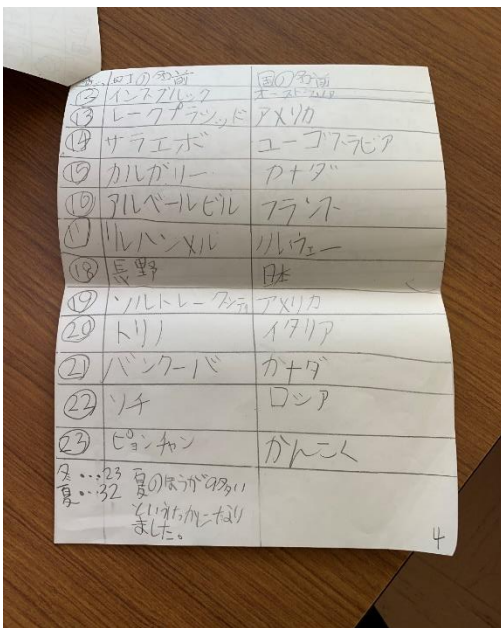 町の名前 国の名前
⑫ インスブルック オーストリア
⑬ レークプラシッド アメリカ
⑭ サラエボ ユーゴスラビア
⑮ カルガリー カナダ
⑯ アルベールビル フランス
⑰ リレハンメル ノルウェー
⑱ 長野 日本
⑲ ソルトレークシティ アメリカ
⑳ トリノ イタリア
㉑ バンクーバ カナダ
㉒ ソチ ロシア
㉓ ピョンチャン かんこく
冬…23
夏…32 夏のほうが多い
というけっかになり
ました。
4